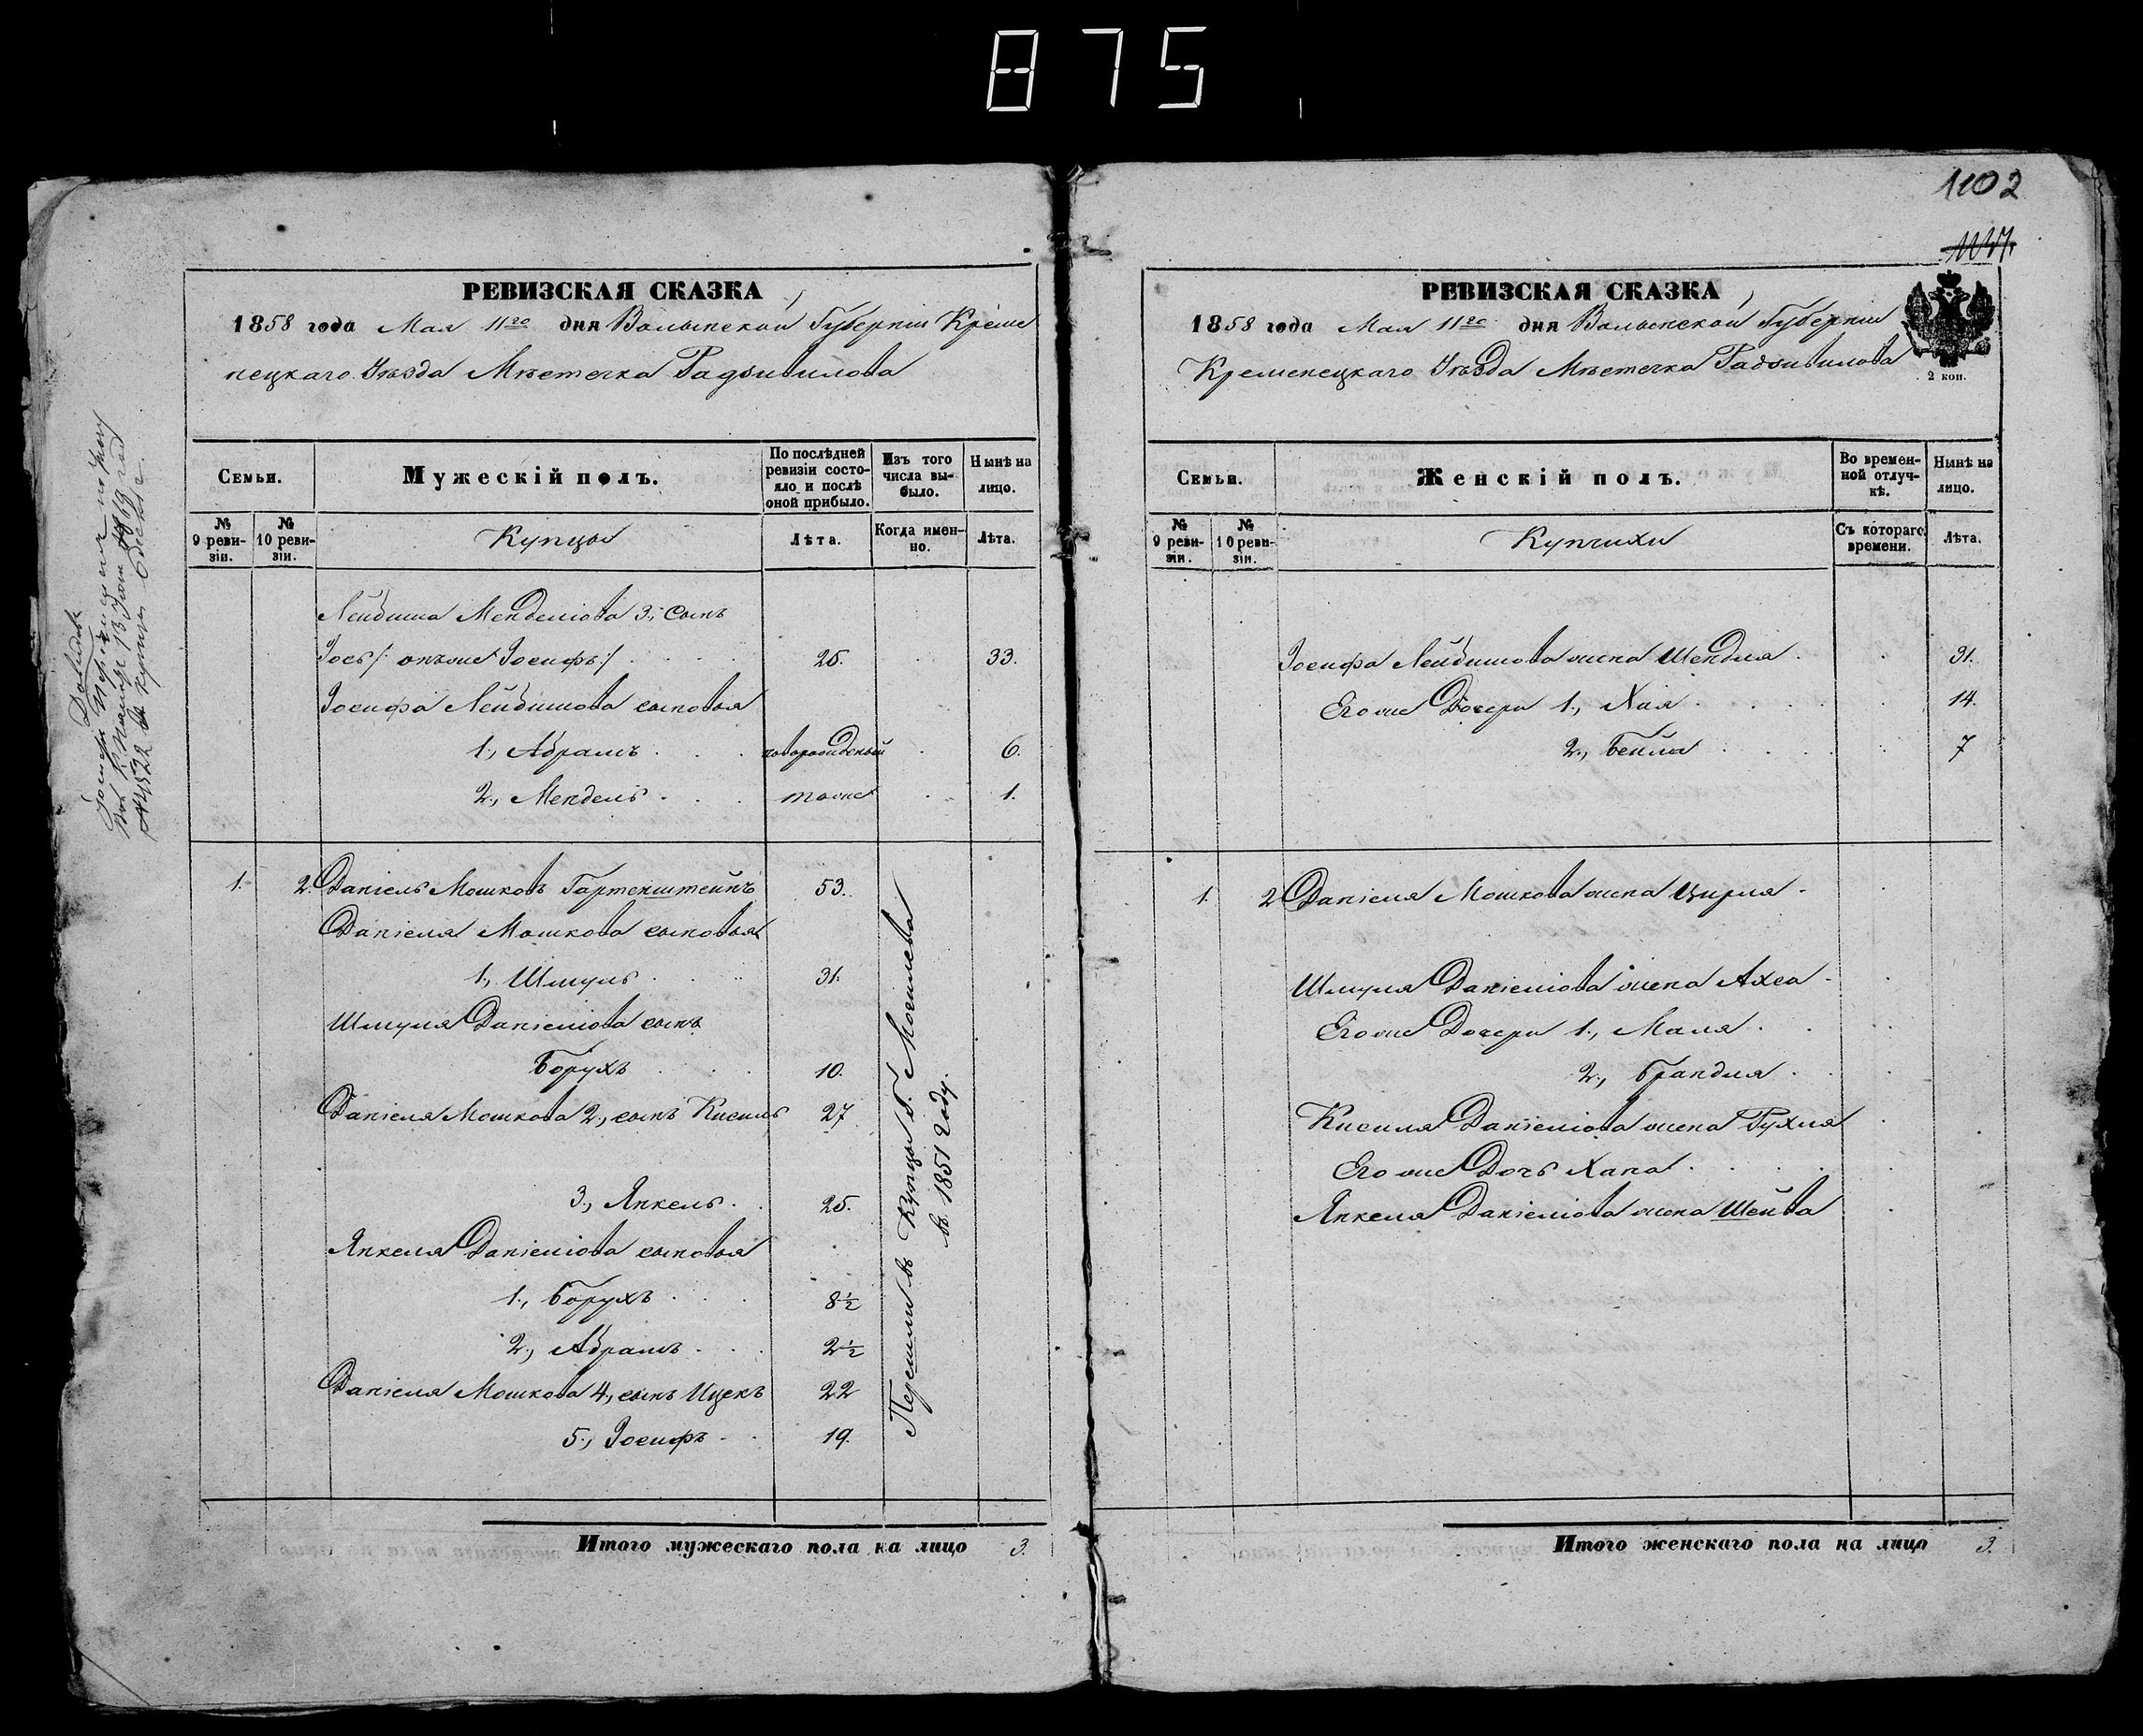 875
1102
РЕВИЗСКАЯ СКАЗКА
1858 года Мая 11го дня Волынской Губерніи Креме
нецкаго Уѣзда Мѣстечка Радзивилова
Семьи.
Мужескій полъ.
По послѣдней ревизіи состояло и послѣ оной прибыло.
Изъ того числа выбыло.
Нынѣ на лицо.
№ 9 ревизіи.
№ 10 ревизіи.
Купцы
Лѣта.
Когда именно.
Лѣта.
Лейбиша Менделіова 3., сынъ
Іось /: онъже Іосифъ :/ 25. 33.
Іосифа Лейбишова сыновья
1., Абрамъ новорожденый 6.
2., Мендель тоже 1.
1. 2. Даніель Мошковъ Гартенштейнъ 53.
Даніеля Мошкова сыновья
1., Шмуль 31.
Шмуля Даніеліова сынъ
Борухъ 10.
Даніеля Мошкова 2., сынъ Кисиль 27
3., Янкель 25.
Янкеля Даніеліова сыновья
1., Борухъ 8½
2., Абрамъ 2½
Даніеля Мошкова 4., сынъ Ицекъ 22
5., Іосифъ 19.
Перешли въ Купцы г. Могилева
въ 1851 году.
Итого мужескаго пола на лицо 3.
Давидъ
13 1869 год
купцы Одесскіе.
РЕВИЗСКАЯ СКАЗКА
1858 года Мая 11го дня Волынской Губерніи
Кременецкаго Уѣзда Мѣстечка Радзивилова
2 коп.
Семьи.
Женскій полъ.
Во временной отлучкѣ.
Нынѣ на лицо.
№ 9 ревизіи.
№ 10 ревизіи.
Купчихи
Съ котораго времени.
Лѣта.
Іосифа Лейбишова жена Шендля 31.
Его же Дочери 1., Хая 14.
2., Бейла 7
1. 2 Даніеля Мошкова жена Цирля
Шмуля Даніеліова жена Ахса
Его же Дочери 1., Маля
2., Брандля
Кисиля Даніеліова жена Рухля
Его же Дочь Хана
Янкеля Даніеліова жена Шейва
Итого женскаго пола на лицо 3.